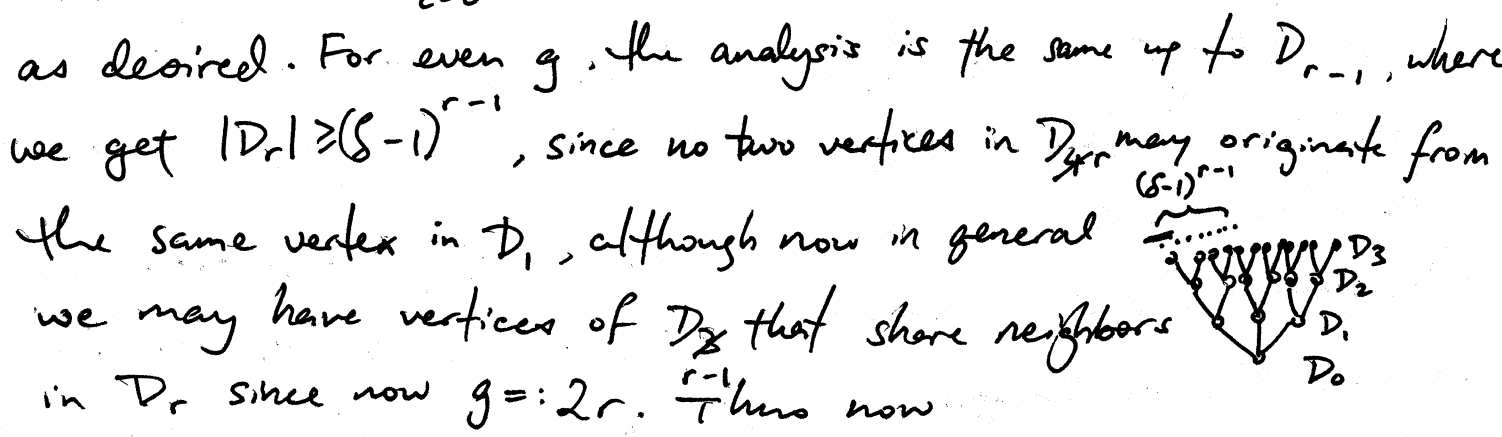 as desired. For even g, the analysis is the same up to D_{r-1}, where
we get |D_r| ≥ (δ-1)^{r-1}, since no two vertices in D_r may originate from
(δ-1)^{r-1}
the same vertex in D_1, although now in general
D_3
D_2
we may have vertices of D_{r-1} that share neighbors
D_1
D_0
in D_r since now g =: 2r. Thus now